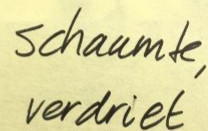 schaamte,
verdriet